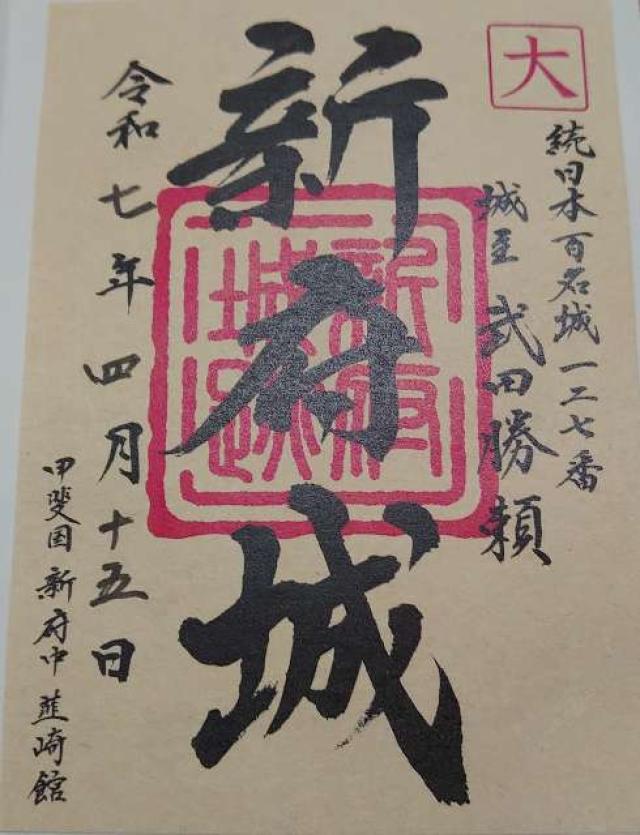 大
続日本百名城一二七番
城主 武田勝頼
新府城
新府城跡
令和七年四月十五日
甲斐国 新府中 韮崎館